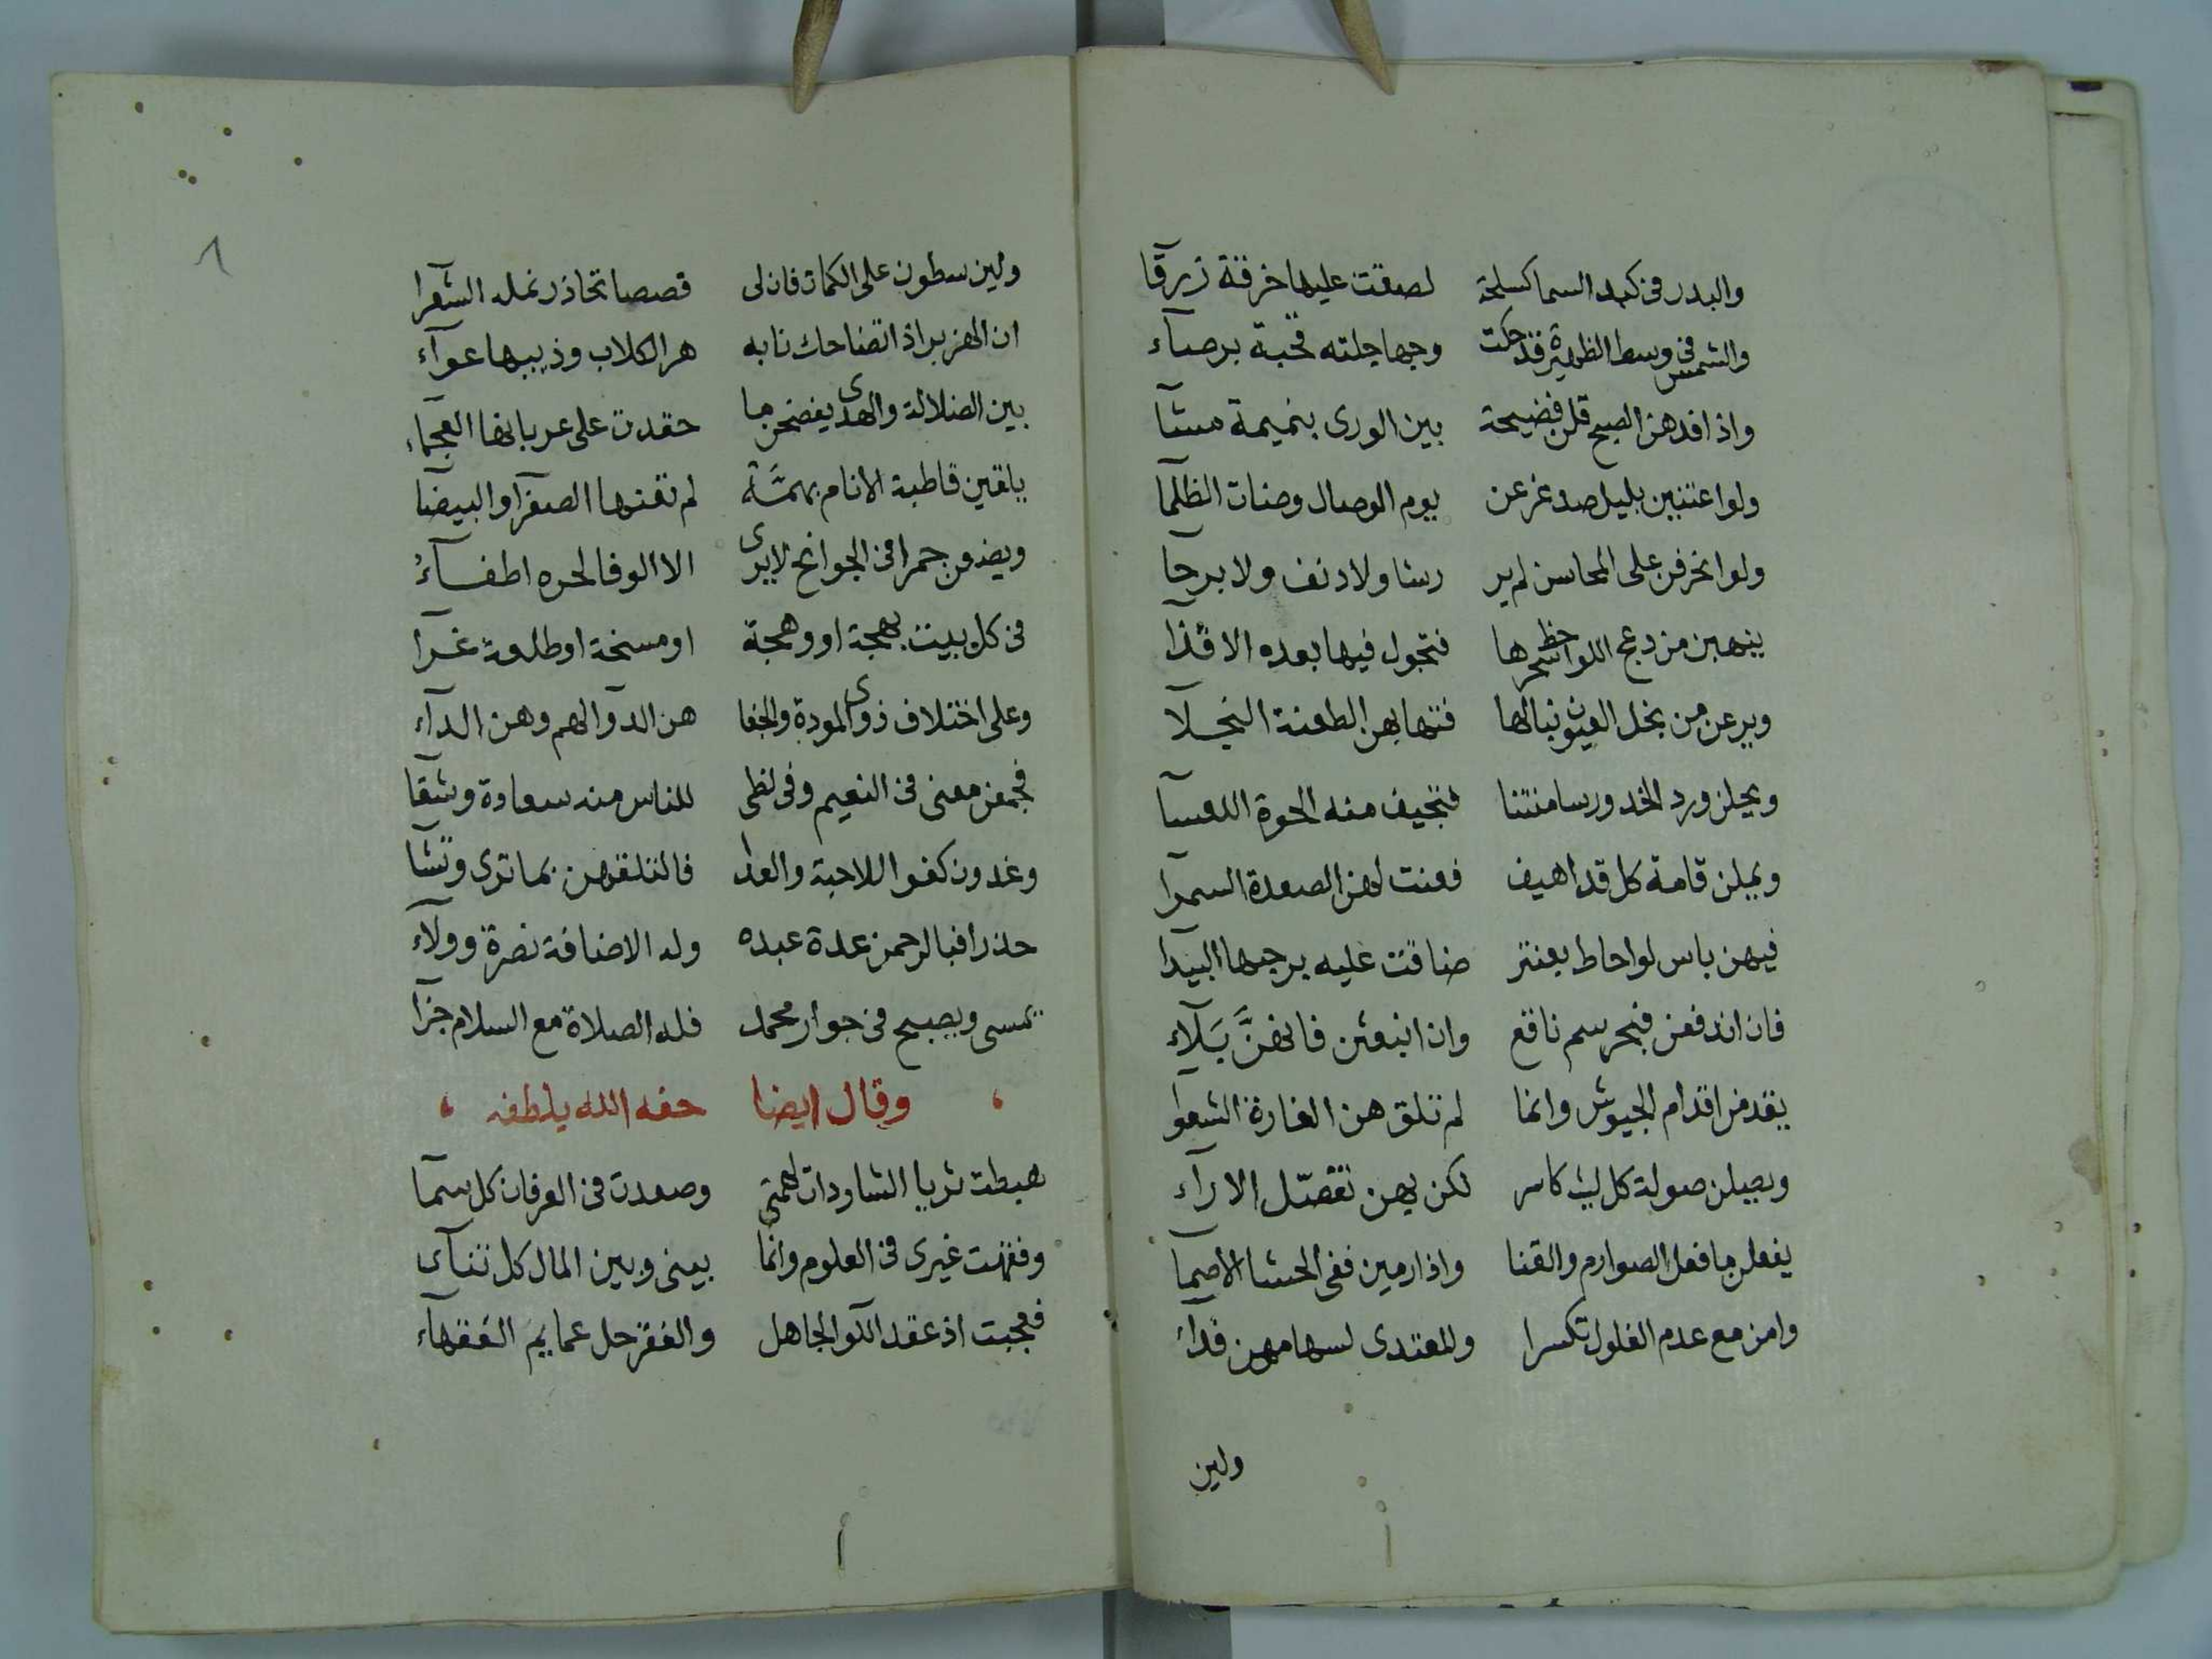 والبدر في كبد السما كسلحة لصقت عليها خرقة زرقا
والشمس في وسط الظهيرة قد حكت وجها جلته قحبة برصآء
واذا قدهن الصبح قلن فضيحة بين الورى بنميمة مشآ
ولو اعتنين بليل صدغ عن يوم الوصال وصنات الظلمآ
ولو انحرفن على المحاسن لم ير رشا ولا دنف ولا برحآ
ينهبن من دعج اللواحظ سحرها فتجول فيها بعده الاقذآ
ويرعن من نجل العيون نبالها فتهابهن الطعنة النجلآ
ويحلن ورد الخد ورسا منتنا فتجيف منه الحوة اللعسآ
ويملن قامة كل قد اهيف فعنت لهن الصعدة السمرآ
فيهن باس لو احاط بعنتر ضاقت عليه برحبها البيدآ
فان اندفعن فبحر سم ناقع وان انبعثن فانهن بلآء
يقدمن اقدام الجيوش وانما لم تلق هن الغارة الشعوا
ويصلن صولة كل ليث كاسر لكن بهن تفصل الارآء
يفعلن ما فعل الصوارم والقنا واذا رمين ففي الحشا الاصمآ
وامن مع عدم الفلول تكسرا وللمعتدى لسهامهن فدآء
ولين
٨
ولين سطون على الكماة فان لى قصصا تحاذر نمله الشعرآ
ان الهزبر اذا تضاحك نابه هر الكلاب وذيبها عوآء
بين الضلالة والهدى يفضحن ما حقدت على عربانها العجمآء
يلقين قاطبة الانام بهمة لم تفنها الصفرآ والبيضا
ويضعن جمرا في الجوانح لا يرى الا الوفا لحره اطفآء
في كل بيت بهجة او وهجة او مسخة او طلعة غرآ
وعلى اختلاف ذوى المودة والجفا هن الدوا لهم وهن الدآء
فجمعن معنى في النعيم وفى لظى للناس منه سعادة وشقآ
وغدون كفوا للاحبة والعدا فالتلقهن بما ترى وتشآ
حذرا فبالرحمن عدة عبده وله الاضافة نصرة وولآء
يمسى ويصبح في جوار محمد فله الصلاة مع السلام جزآ
وقال ايضا حفه الله بلطفه
هبطت ثريا الشاودات لهمتي وصعدت في العرفان كل سمآ
وفقهت غيرى في العلوم وانما بينى وبين المال كل تنآى
فعجبت اذ عقد اللوا لجاهل والفقر حل عمايم الفقهآء